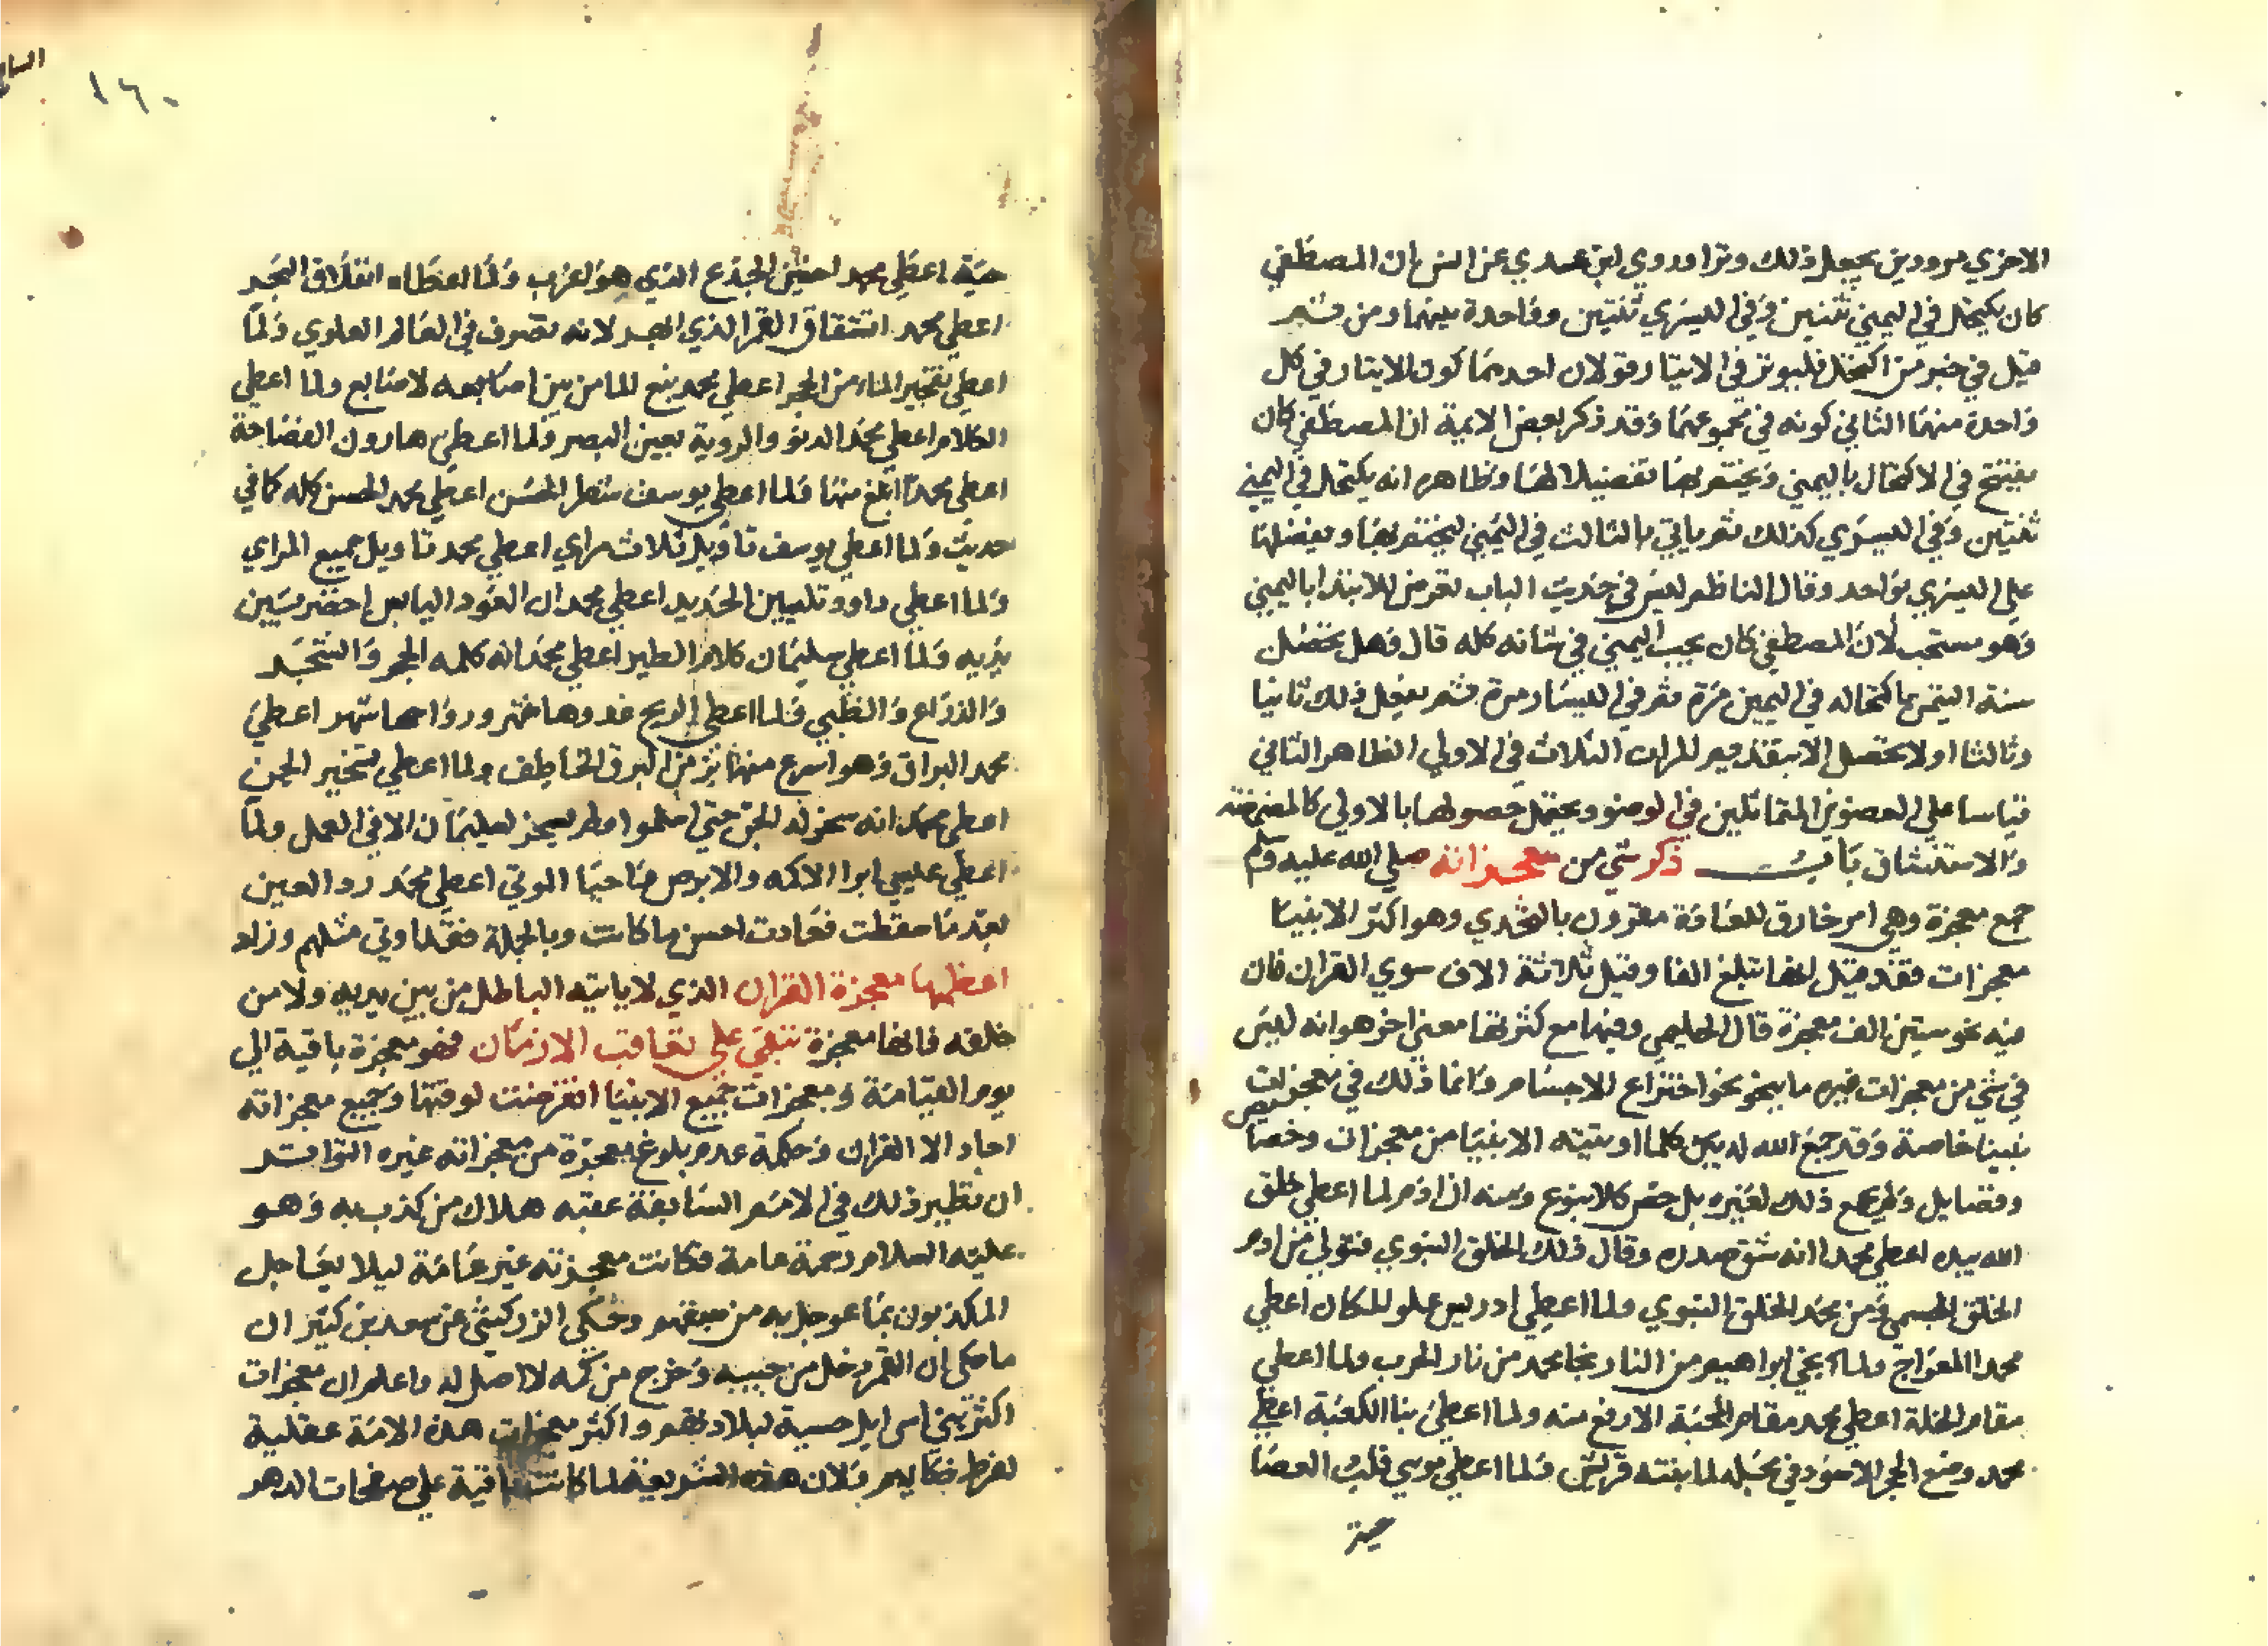 الاخري مرودين يجعل ذلك وترا وروي ابن عدي عن انس ان المصطفي
كان يكتحل في اليمني ثنتين وفي اليسري ثنتين وواحدة بينهما ومن ثم
قيل في خبر من اكتحل فليوتر في الايتار قولان احدهما كون الايتار في كل
واحدة منهما الثاني كونه في مجموعهما وقد ذكر بعض الايمة ان المصطفي كان
يفتتح في الاكتحال باليمني ويختم بها تفضيلا لها وظاهره انه يكتحل في اليمني
ثنتين وفي اليسري كذلك ثم ياتي بالثالث في اليمني ليختم بها ويفضلها
علي اليسري بواحد وقال الناظم ليس في حديث الباب تعرض للابتدا باليمني
وهو مستحب لان المصطفي كان يحب اليمني في شانه كله قال وهل تحصل
سنة اليمني باكتحاله في اليمين مرة ثم في اليسار مرة ثم يفعل ذلك ثانيا
وثالثا اولا يحصل الا بتقديم المرات الثلاث في الاولي الظاهر الثاني
قياسا علي العضوين المتماثلين في الوضو ويحتمل حصولها بالاولي كالمضمضة
والاستنشاق باب ذكر شي من معجزاته صلي الله عليه وسلم
جمع معجزة وهي امر خارق للعادة مقرون بالتحدي وهو اكثر الانبيا
معجزات فقد قيل انها تبلغ الفا وقيل ثلاثة الاف سوي القران فان
فيه نحو ستين الف معجزة قال الحليمي وفيها مع كثرتها معني اخر هو انه ليس
في شي من معجزات غيره ما ينحو نحو اختراع الاجسام وانما ذلك في معجزات
نبينا خاصة وقد جمع الله له بين كلما اوتيته الانبيا من معجزات وخصايص
وفضايل ولم يجمع ذلك لغيره بل خص كلا بنوع ومنه ان ادم لما اعطي خلق
الله بيده اعطي محمدا انه شق صدره وقال ذلك الخلق النبوي فتولي من ادم
الخلق الجسمي ومن محمد الخلق النبوي ولما اعطي ادريس علو المكان اعطي
محمدا المعراج ولما نجي ابراهيم من النار نجا محمد من نار الحرب ولما اعطي
مقام الخلة اعطي محمد مقام المحبة الارفع منه ولما اعطي بنا الكعبة اعطي
محمد وضع الحجر الاسود في محله لما بنته قريش ولما اعطي موسي قلب العصا
حية
١٦٠
حية اعطي محمد احنين الجذع الذي هو اغرب ولما اعطاه انفلاق البحر
اعطي محمد انشقاق القمر الذي ابعد لانه تصرف في العالم العلوي ولما
اعطي تفجير الماء من الحجر اعطي محمد نبع الما من بين اصابعه لاصابع ولما اعطي
الكلام اعطي محمد الدنو والروية بعين البصر ولما اعطي هارون الفصاحة
اعطي محمدا ابلغ منها ولما اعطي يوسف شطر الحسن اعطي محمد الحسن كله كما في
حديث ولما اعطي يوسف تاويل ثلاث مراي اعطي محمد تاويل جميع المراي
ولما اعطي داوود تليين الحديد اعطي محمد ان العود اليابس اخضر بين
يديه ولما اعطي سليمان كلام الطير اعطي محمد انه كلمه الحجر والشجر
والذراع والظبي ولما اعطي الريح غدوها شهر ورواحها شهر اعطي
محمد البراق وهو اسرع منها بل من البرق الخاطف ولما اعطي تسخير الجن
اعطي محمد انه سخر له الجن حتي اسلموا ولم يسخر لسليمان الا في العمل ولما
اعطي عيسي ابرا الاكمه والابرص واحيا الموتي اعطي محمد رد العين
بعد ما سقطت فعادت احسن ما كانت وبالجملة فقد اوتي مثلهم وزاد
اعظمها معجزة القران الذي لا ياتيه الباطل من بين يديه ولا من
خلفه فانها معجزة تبقي علي تعاقب الازمان فهو معجزة باقية الي
يوم القيامة ومعجزات جميع الانبيا انقرضت لوقتها وجميع معجزاته
احاد الا القران وحكمة عدم بلوغ معجزة من معجزاته غيره التواتر
ان نظير ذلك في الامم السابقة عقبه هلاك من كذب به وهو
عليه السلام رحمة عامة فكانت معجزته غير عامة ليلا يعاجل
المكذبون بما عوجل به من سبقهم وحكي الزركشي عن سعد بن كثير ان
ما حكي ان القمر دخل من جيبه وخرج من كمه لا اصل له واعلم ان معجزات
اكثر بني اسرايل حسية لبلادتهم واكثر معجزات هذه الامة عقلية
لفرط ذكايهم ولان هذه الشريعة لما كانت باقية علي صفحات الدهر